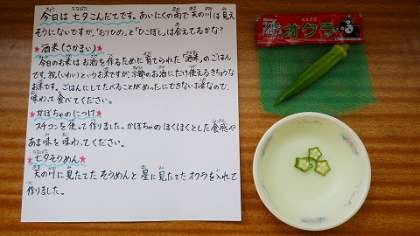 今日は七夕こんだてです。あいにくの雨で天の川は見え
そうにないですが、「おりひめ」と「ひこ星」は会えてるかな?
★酒米(さかまい)★
今日のお米はお酒を作るために育てられた「酒米」のごはん
です。祝(いわい)というお米ですが、京都のお酒にだけ使えるきちょうな
お米です。ごはんにしてたべることがめったにできないお米なので、
味わって食べてください。
★かぼちゃのにつけ★
スチコンを使って作りました。かぼちゃのほくほくとした食感や
あま味を味わってください。
★七夕そうめん★
天の川に見たてたそうめんと星に見たてたオクラを入れて
作りました。
オクラ